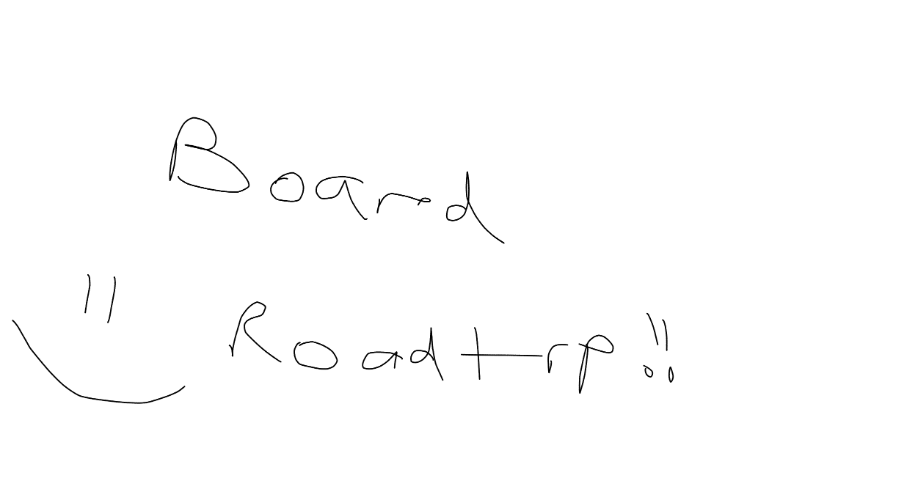 Board
Roadtrp!!